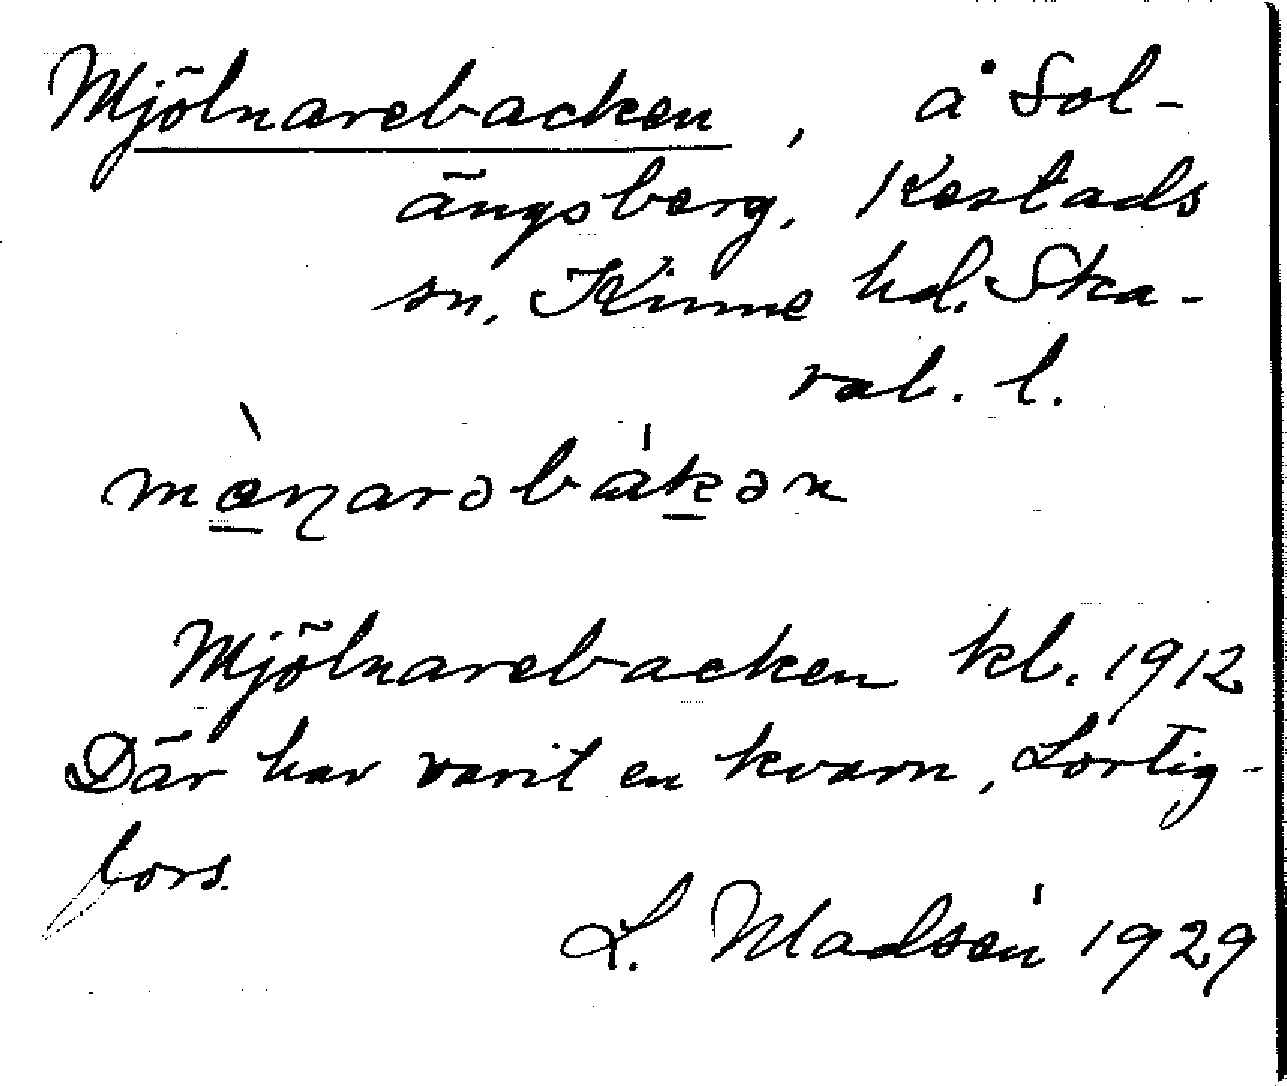 Mjölnarebacken, å Sol-
ängsberg, Kestads
sn, Kinne hd. Ska-
rab. l.
Mjölnarebacken kl. 1912
Där har varit en kvarn, Lortig-
fors.
L. Madsén 1929